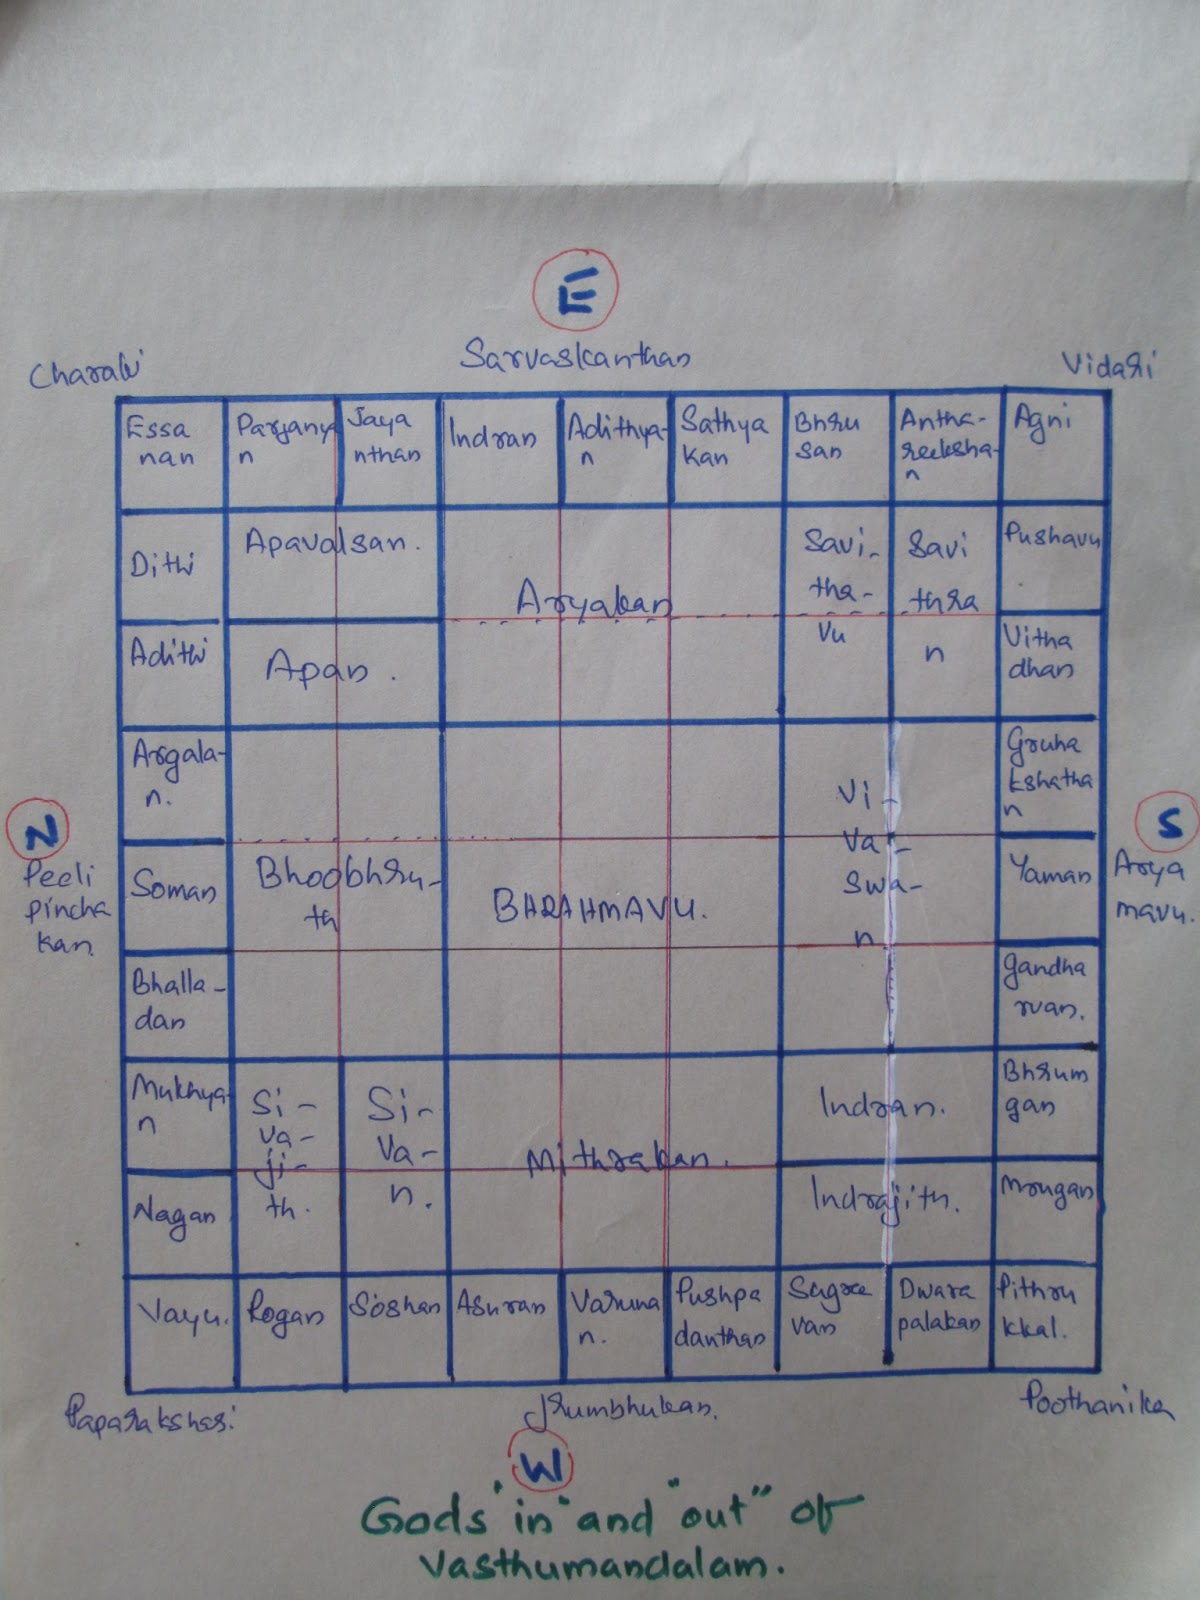 E
Sarvaskanthan
Charaki
Vidari
Essa
nan
Parjanya
n
Jaya
nthan
Indran
Adithya-
n
Sathya
kan
Bhru
san
Antha-
reeksha-
n
Agni
Dithi
Apavalsan.
Aryakan
Savi-
tha-
vu
Savi
thra
n
Pushavu
Adithi
Apan.
Vitha
dhan
Argala-
n.
Gruha
kshatha
n
N
Peeli
pincha
kan.
Soman
Bhoobhru-
th
BHRAHMAVU.
Vi-
va-
swa-
n
Yaman
S
Arya
mavu.
Bhalla-
dan
Gandha
rvan.
Mukhya-
n
Si-
va-
ji-
th.
Si-
va-
n.
Mithrakan.
Indran.
Bhrum
gan
Nagan
Indrajith.
Mrugan
Vayu.
Rogan
Soshan
Asuran
Varuna
n.
Pushpa
danthan
Sugree
van
Dwara
palakan
Pithru
kkal.
Paparakshasi
Jrumbhukan.
Poothanika
W
Gods "in" and "out" of
Vasthumandalam.